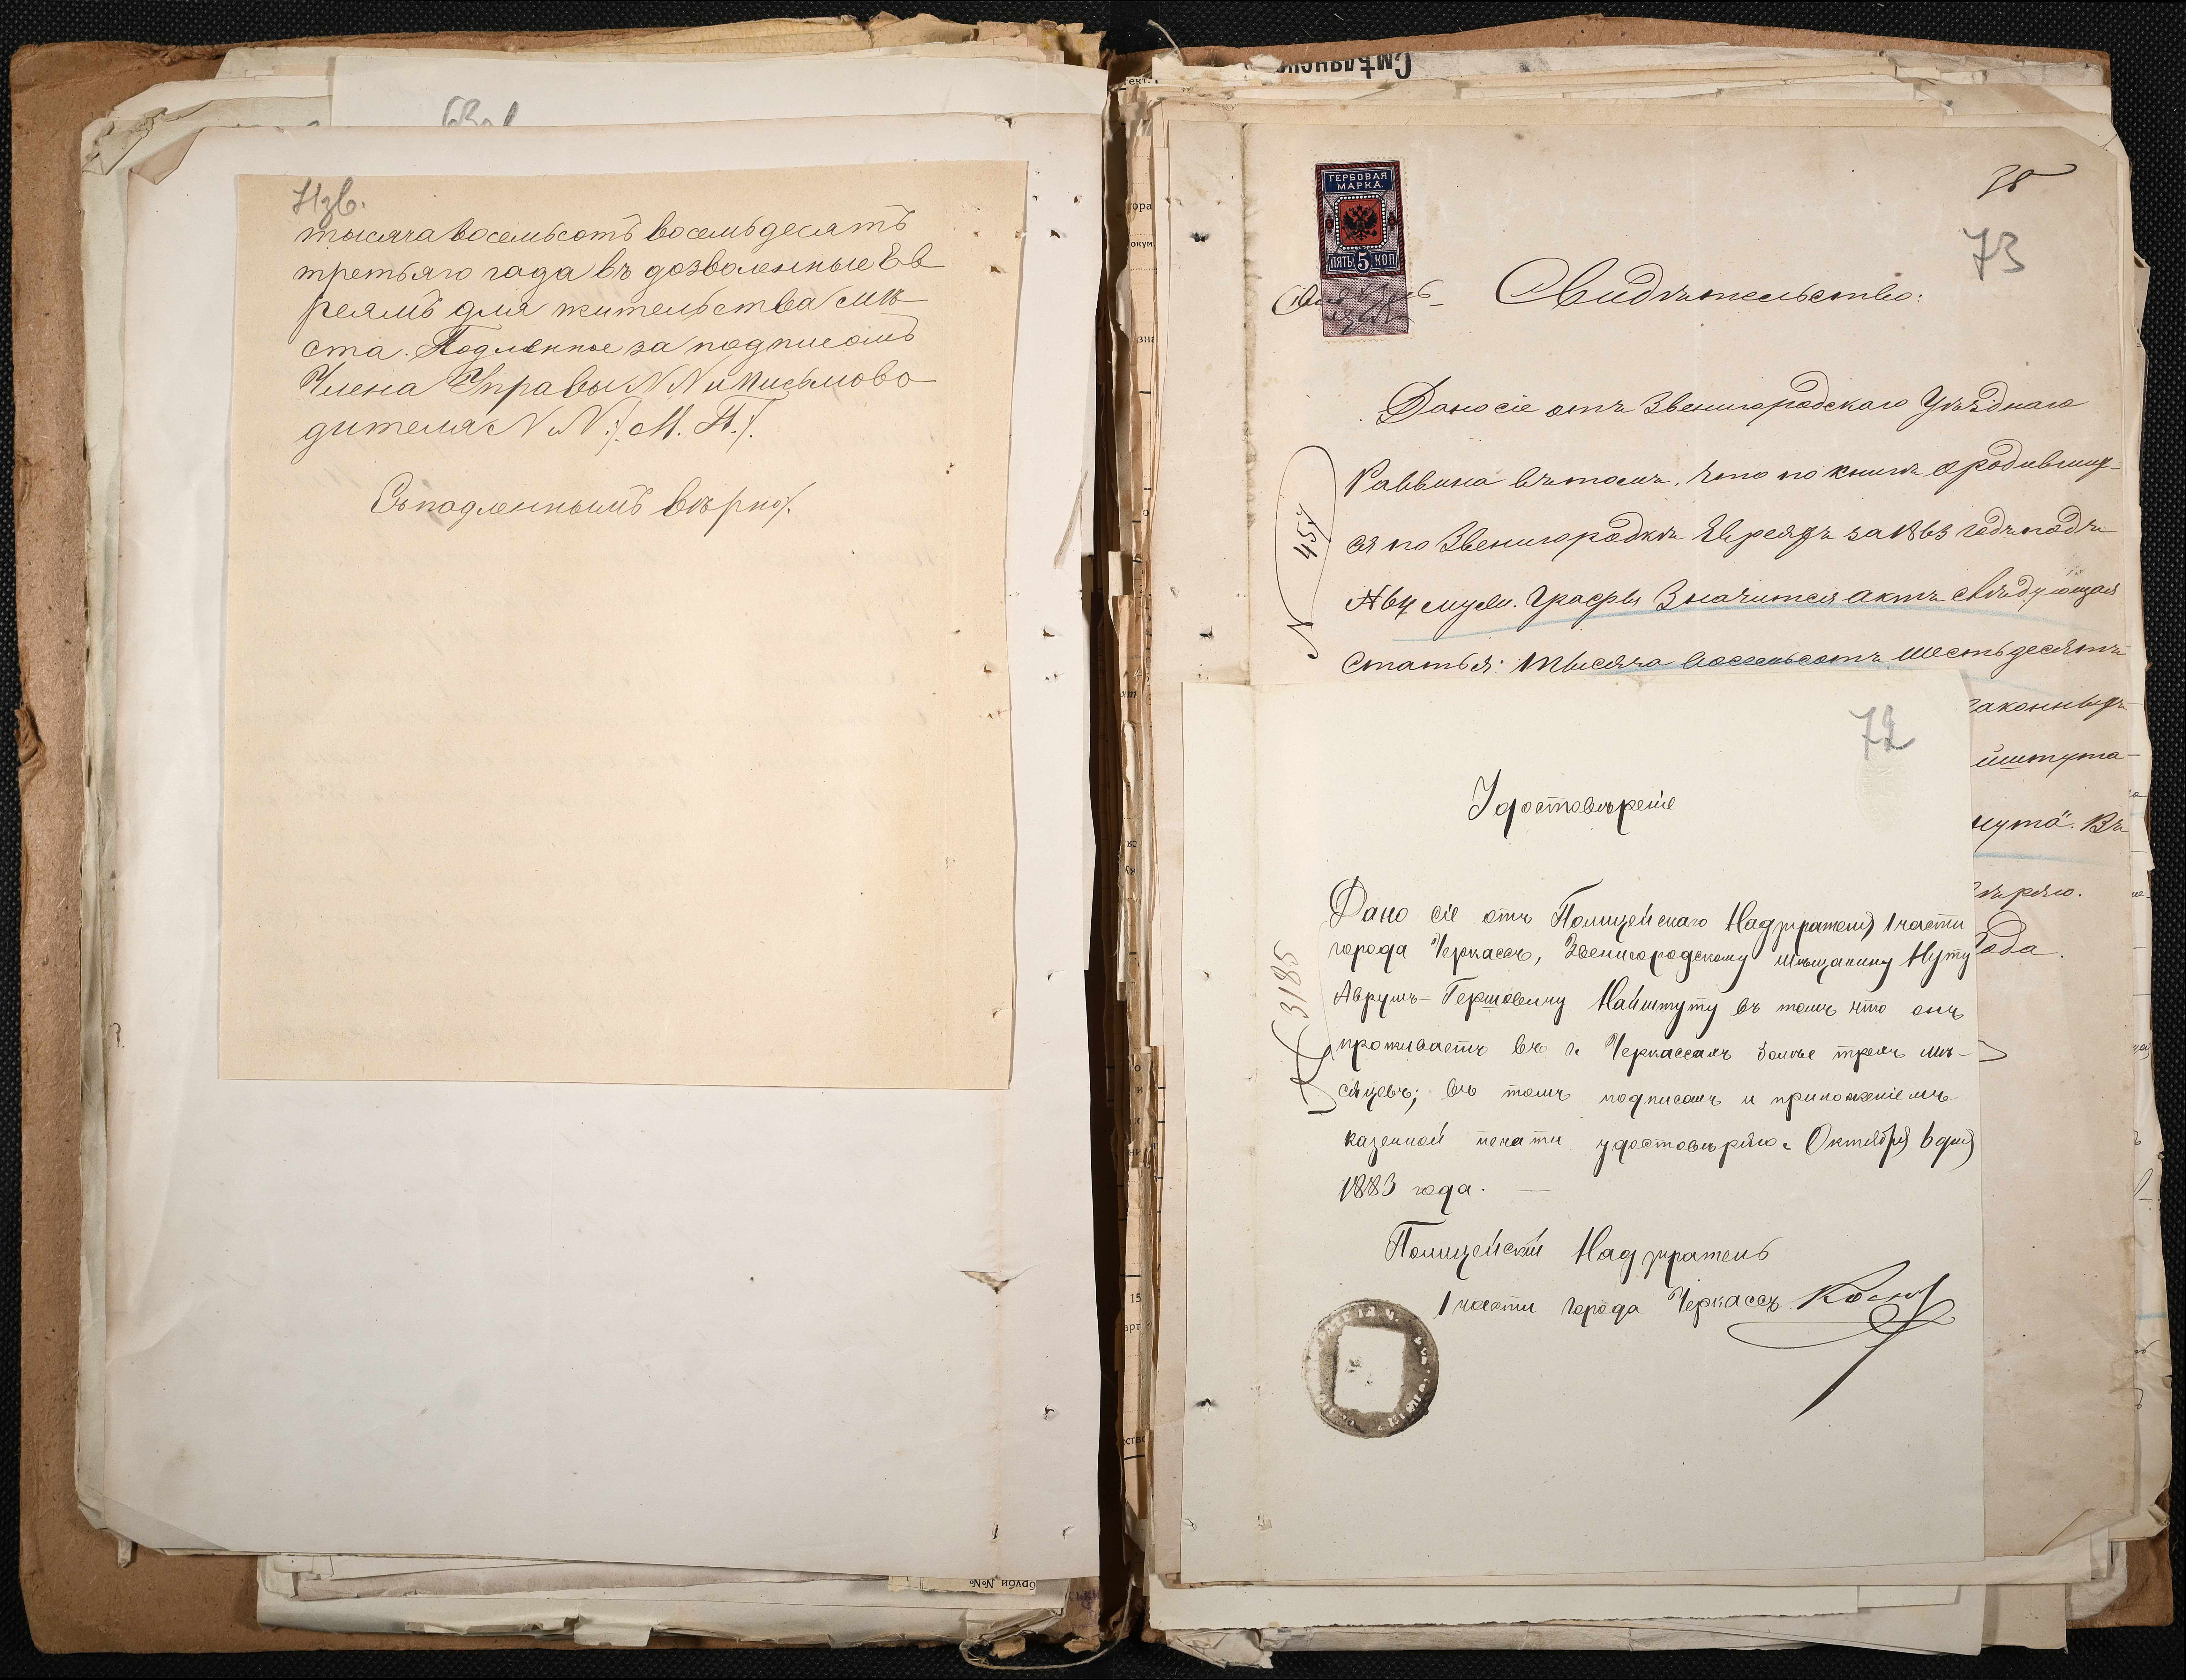 71зв.
тысяча восемьсотъ восемьдесятъ
третьяго года въ дозволенные Ев
реямъ для жительства мѣ
ста. Подлинное за подписомъ
Члена Управы NN и письмово
дителя NN :/. М. П./.
Съ подленнымъ вѣрно/.
Смѣлянск
ГЕРБОВАЯ
МАРКА.
ПЯТЬ 5 КОП
73
Свидѣтельство:
Дано сіе отъ Звенигородскаго Уѣзднаго
Раввина въ томъ, что по книгѣ о родивших-
ся по Звенигородкѣ Евреяхъ за 1863 годъ подъ
№ 64 муж. графы Значится актъ слѣдующая
статья: тысяча восемьсотъ шестьдесятъ
законныхъ
йштута-
нута". Въ
вѣряю.
Года.
N 457
72
Удостовѣреніе
Дано сіе отъ Полицейскаго Надзирателя 1 части
города Черкассъ, Звенигородскому мѣщанину Нуту
Аврумъ-Гершовичу Найштуту въ томъ что онъ
проживаетъ въ г. Черкассахъ болѣе трехъ мѣ-
сяцевъ; въ томъ подписомъ и приложеніемъ
казенной печати удостовѣряю. Октября 6 дня
1883 года.
N 3185
Полицейскій Надзиратель
1 части города Черкассъ